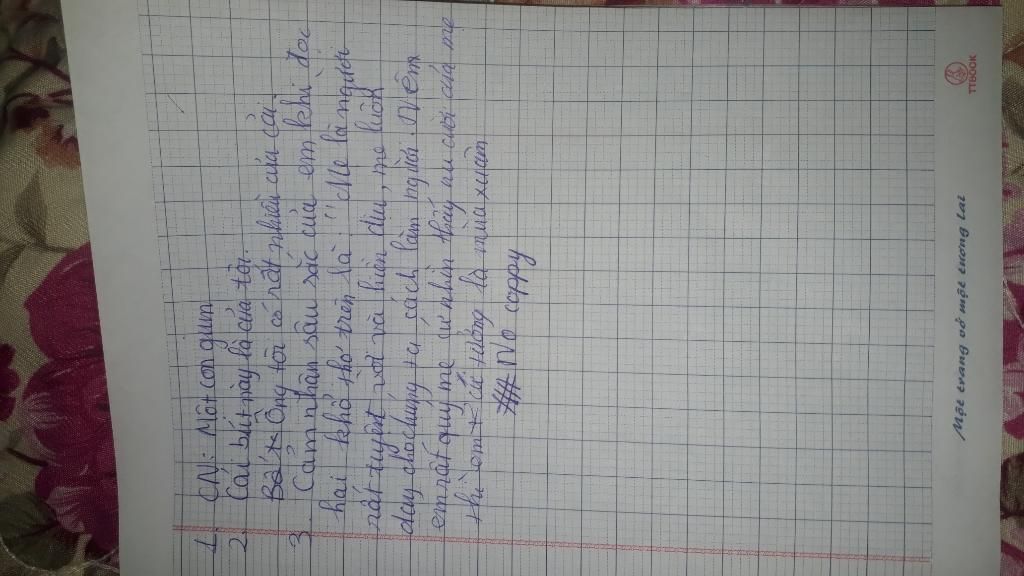 1. CN: Một con giun
2. Cái bút này là của tôi.
Bố Ông tôi có rất nhiều của cải.
3. Cảm nhận sâu sắc của em khi đọc
hai khổ thơ trên là: "Mẹ là người
rất tuyệt vời và hiền dịu, mẹ luôn
dạy cho chúng ta cách làm người. Nêm
em rất quý mẹ cứ nhìn thấy nụ cười của mẹ
thì em cứ tưởng là mùa xuân
## No coppy
Một trang vở một tương lai
TTBOOK